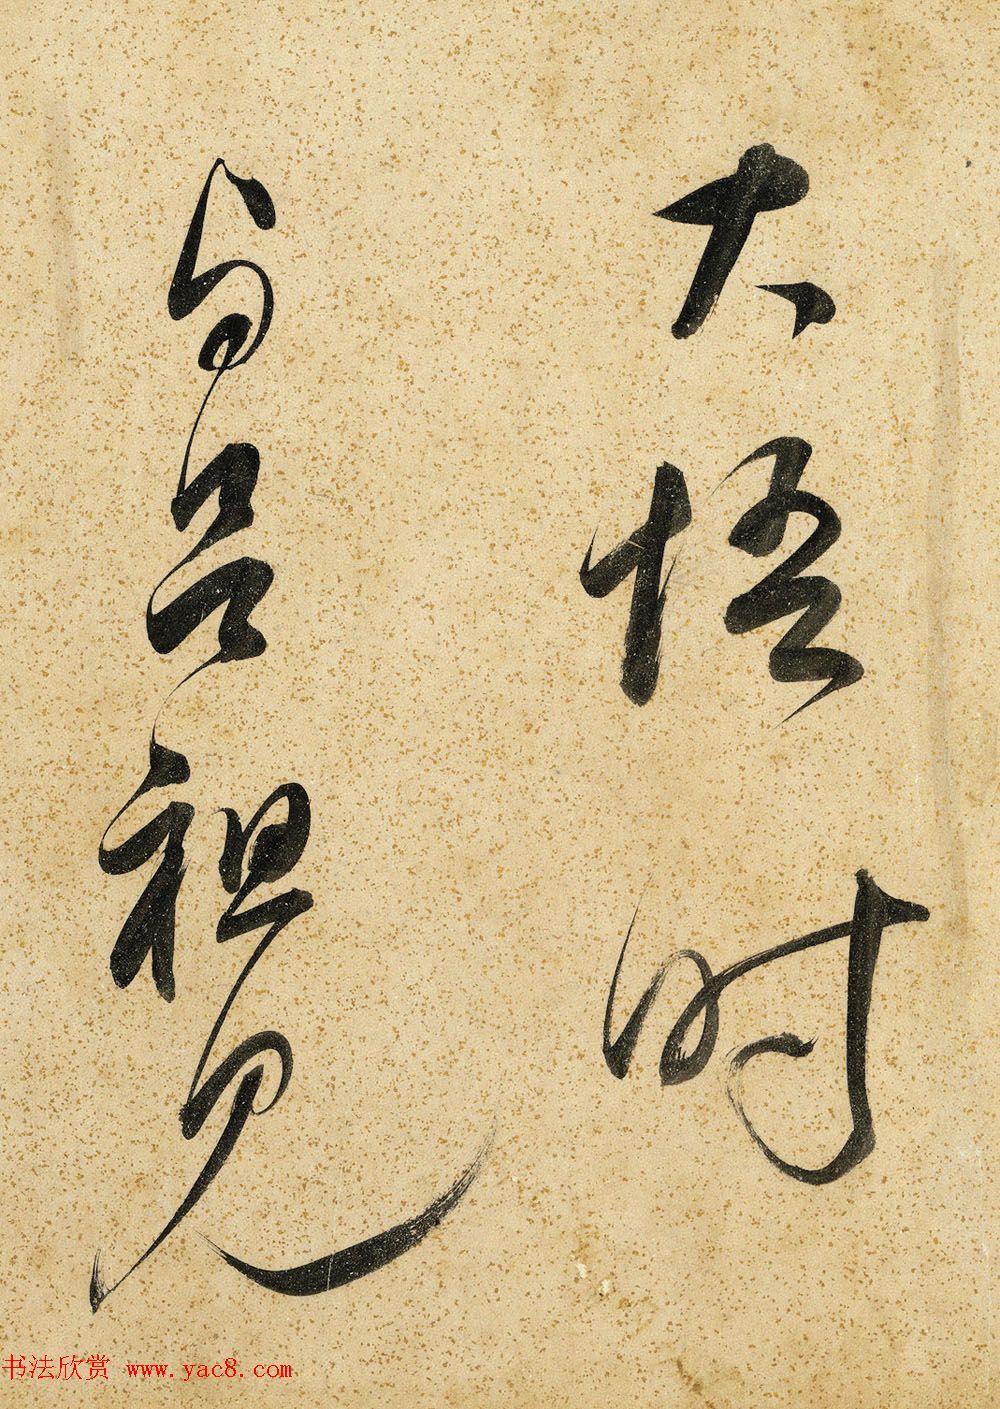 大悟时
与吕祖见
书法欣赏 www.yac8.com